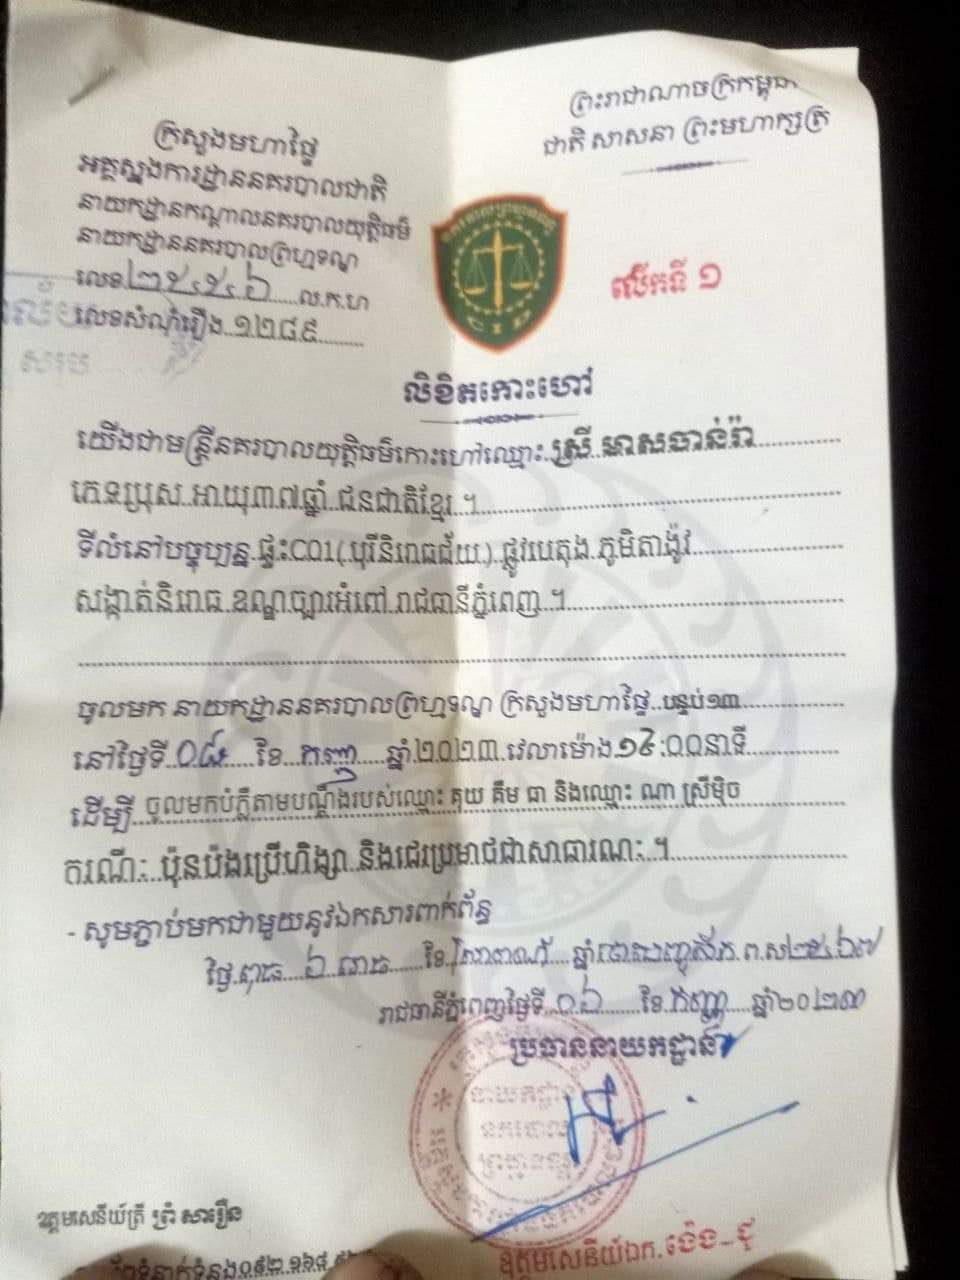 ព្រះរាជាណាចក្រកម្ពុជា
ជាតិ សាសនា ព្រះមហាក្សត្រ
ក្រសួងមហាផ្ទៃ
អគ្គស្នងការដ្ឋាននគរបាលជាតិ
នាយកដ្ឋានកណ្តាលនគរបាលយុត្តិធម៌
នាយកដ្ឋាននគរបាលព្រហ្មទណ្ឌ
លេខ ល.ក.ហ
លេខសំណុំរឿង..១២៨៩
CID
លើកទី ១
លិខិតកោះហៅ
យើងជាមន្ត្រីនគរបាលយុត្តិធម៌កោះហៅឈ្មោះ..ស្រី មាសចាន់រ៉ា
ភេទប្រុស.អាយុ៣៧ឆ្នាំ.ជនជាតិខ្មែរ ។
ទីលំនៅបច្ចុប្បន្ន.ផ្ទះC01(បុរីនិរោធជ័យ).ផ្លូវបេតុង.ភូមិតាង៉ូវ
សង្កាត់និរោធ.ខណ្ឌច្បារអំពៅ.រាជធានីភ្នំពេញ ។
ចូលមក នាយកដ្ឋាននគរបាលព្រហ្មទណ្ឌ ក្រសួងមហាផ្ទៃ បន្ទប់១៣
នៅថ្ងៃទី..០៨ ខែ កញ្ញា ឆ្នាំ២០២៣.វេលាម៉ោង :០០នាទី
ដើម្បី ចូលមកបំភ្លឺតាមបណ្តឹងរបស់ឈ្មោះ គុយ គឹម ធា និងឈ្មោះ ណា ស្រីម៉ិច
ករណីៈ ប៉ុនប៉ងប្រើហិង្សា និងជេរប្រមាថជាសាធារណៈ ។
- សូមភ្ជាប់មកជាមួយនូវឯកសារពាក់ព័ន្ធ
ថ្ងៃ ពុធ ៦ រោច ខែ ស្រាពណ៍ ឆ្នាំថោះ បញ្ចស័ក ព.ស២៥៦៧
រាជធានីភ្នំពេញថ្ងៃទី ០៦ ខែ កញ្ញា ឆ្នាំ២០២៣
ប្រធាននាយកដ្ឋាន
នាយកដ្ឋាន
នគរបាល
ព្រហ្មទណ្ឌ
ឧត្តមសេនីយ៍ត្រី ព្រំ សារឿន
ឧត្តមសេនីយ៍ឯក